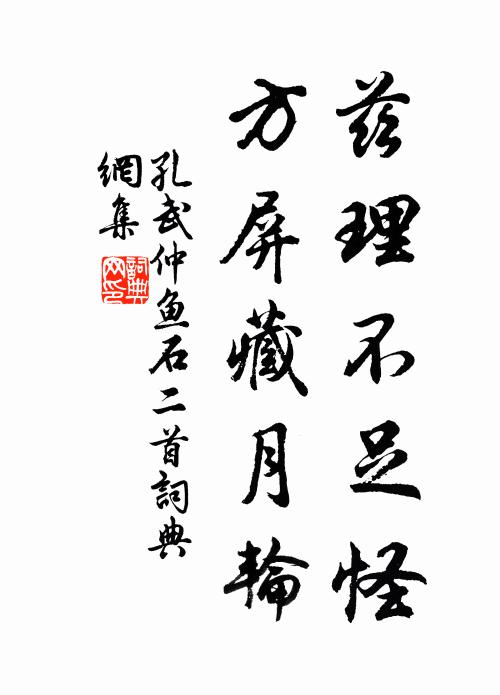 茲理不足怪
方屏藏月輪
孔武仲魚石二首詞典
網集
詞典網印